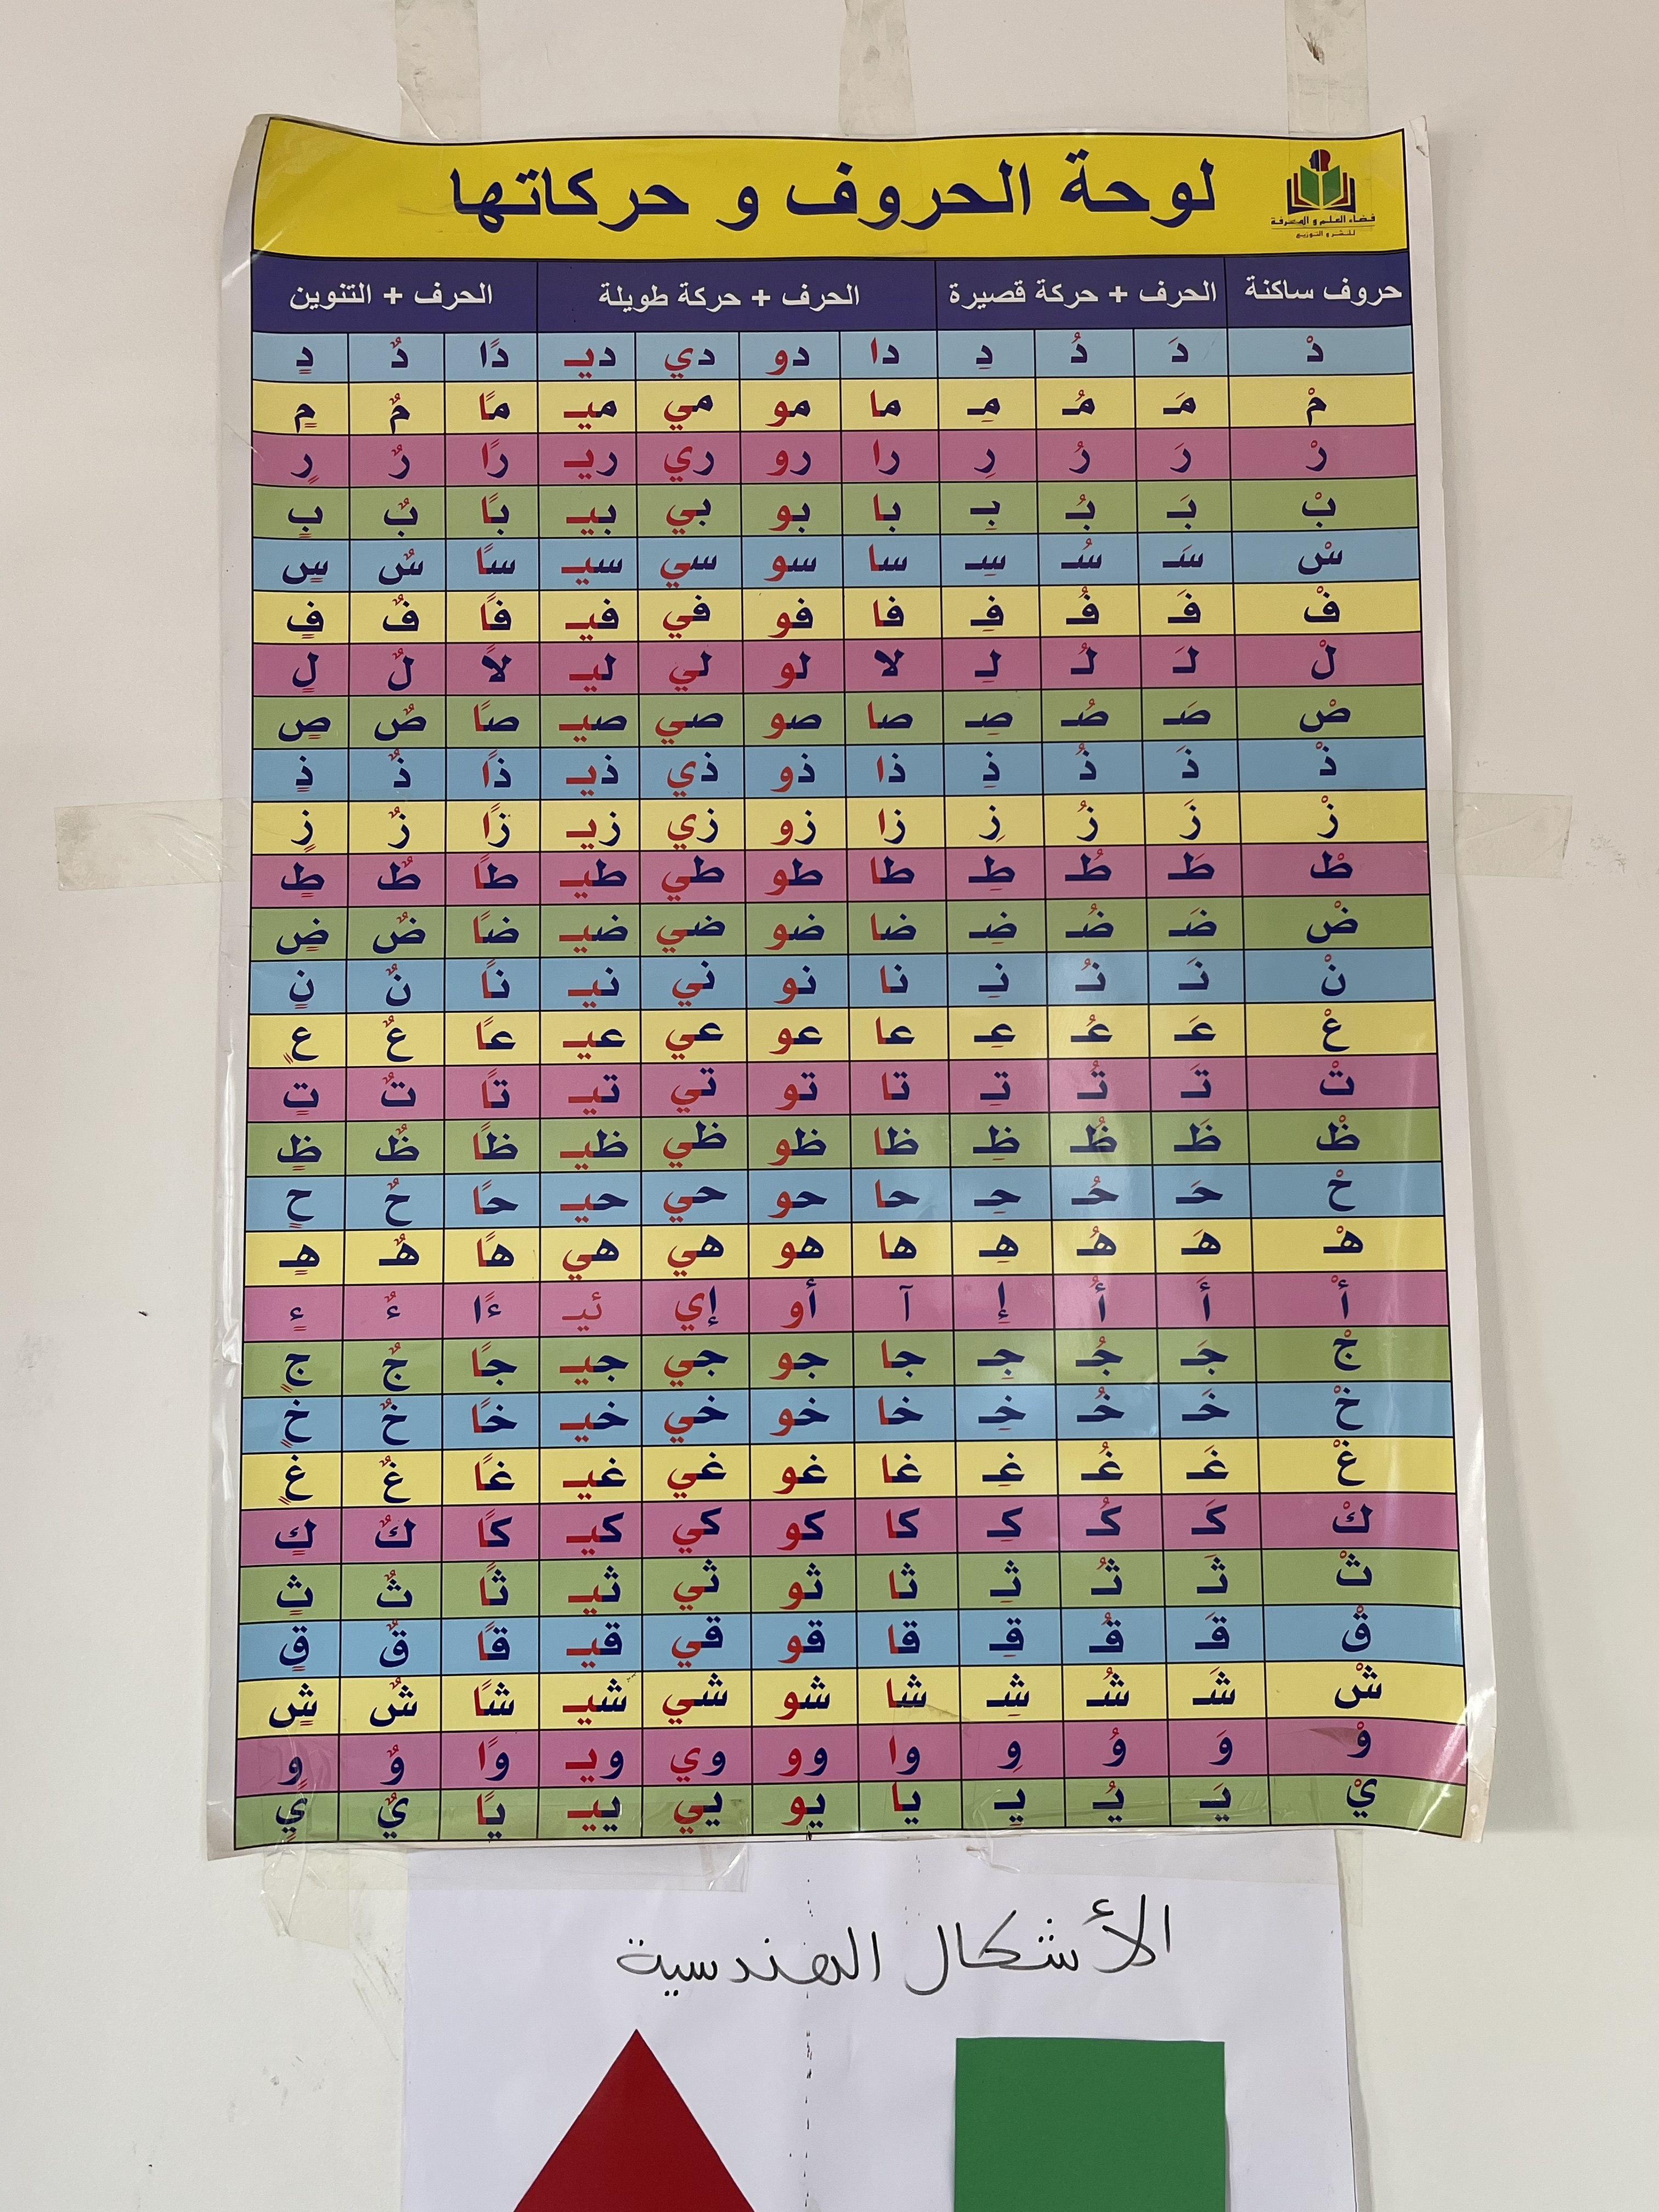 لوحة الحروف و حركاتها
فضاء العلم و المعرفة
للنشر و التوزيع
حروف ساكنة الحرف + حركة قصيرة الحرف + حركة طويلة الحرف + التنوين
دْ دَ دُ دِ دا دو دي ديـ دًا دٌ دٍ
مْ مَـ مُـ مِـ ما مو مي ميـ مًا مٌ مٍ
رْ رَ رُ رِ را رو ري ريـ رًا رٌ رٍ
بْ بَـ بُـ بِـ با بو بي بيـ بًا بٌ بٍ
سْ سَـ سُـ سِـ سا سو سي سيـ سًا سٌ سٍ
فْ فَـ فُـ فِـ فا فو في فيـ فًا فٌ فٍ
لْ لَـ لُـ لِـ لا لو لي ليـ لاً لٌ لٍ
صْ صَـ صُـ صِـ صا صو صي صيـ صًا صٌ صٍ
ذْ ذَ ذُ ذِ ذا ذو ذي ذيـ ذًا ذٌ ذٍ
زْ زَ زُ زِ زا زو زي زيـ زًا زٌ زٍ
طْ طَـ طُـ طِـ طا طو طي طيـ طًا طٌ طٍ
ضْ ضَـ ضُـ ضِـ ضا ضو ضي ضيـ ضًا ضٌ ضٍ
نْ نَـ نُـ نِـ نا نو ني نيـ نًا نٌ نٍ
عْ عَـ عُـ عِـ عا عو عي عيـ عًا عٌ عٍ
تْ تَـ تُـ تِـ تا تو تي تيـ تًا تٌ تٍ
ظْ ظَـ ظُـ ظِـ ظا ظو ظي ظيـ ظًا ظٌ ظٍ
حْ حَـ حُـ حِـ حا حو حي حيـ حًا حٌ حٍ
هْـ هَـ هُـ هِـ ها هو هي هي هًا هٌـ هٍـ
أْ أَ أُ إِ آ أو إي ئيـ ءًا ءٌ ءٍ
جْ جَـ جُـ جِـ جا جو جي جيـ جًا جٌ جٍ
خْ خَـ خُـ خِـ خا خو خي خيـ خًا خٌ خٍ
غْ غَـ غُـ غِـ غا غو غي غيـ غًا غٌ غٍ
كْ كَـ كُـ كِـ كا كو كي كيـ كًا كٌ كٍ
ثْ ثَـ ثُـ ثِـ ثا ثو ثي ثيـ ثًا ثٌ ثٍ
قْ قَـ قُـ قِـ قا قو قي قيـ قًا قٌ قٍ
شْ شَـ شُـ شِـ شا شو شي شيـ شًا شٌ شٍ
وْ وَ وُ وِ وا وو وي ويـ وًا وٌ وٍ
يْ يَـ يُـ يِـ يا يو يي ييـ يًا يٌ يٍ
الأشكال الهندسية